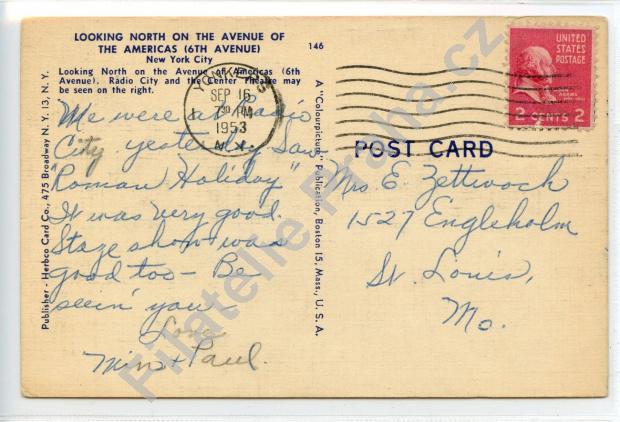 LOOKING NORTH ON THE AVENUE OF
THE AMERICAS (6TH AVENUE)
New York City
Looking North on the Avenue of Americas (6th
Avenue). Radio City and the Center Theatre may
be seen on the right.
146
We were at Radio
City yesterday. Saw
"Roman Holiday"
It was very good.
Stage show was
good too - Be
seein' you -
Love
Mins + Paul.
Publisher - Herbco Card Co., 475 Broadway N. Y. 13, N. Y.
A "Colourpicture" Publication, Boston 15, Mass., U. S. A.
YONKERS
SEP 16
PM
1953
N.Y.
UNITED
STATES
POSTAGE
ADAMS
2 CENTS 2
POST CARD
Mrs. E. Zettwoch
1527 Engleholm
St. Louis,
Mo.
Filatelie Praha.cz